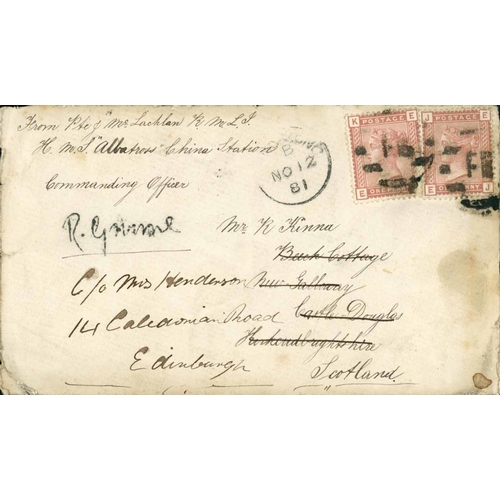 From Pte J McLachlan R M L I
H. M. S. "Albatross" China Station
Commanding Officer
B
NO 12
81
K POSTAGE E
E ONE J
J POSTAGE E
E J
Mr R Kinna
Buck Cottage
C/o Mrs Henderson New Galloway
14 Caledonian Road Castle Douglas
Kirkcudbrightshire
Edinburgh
Scotland.